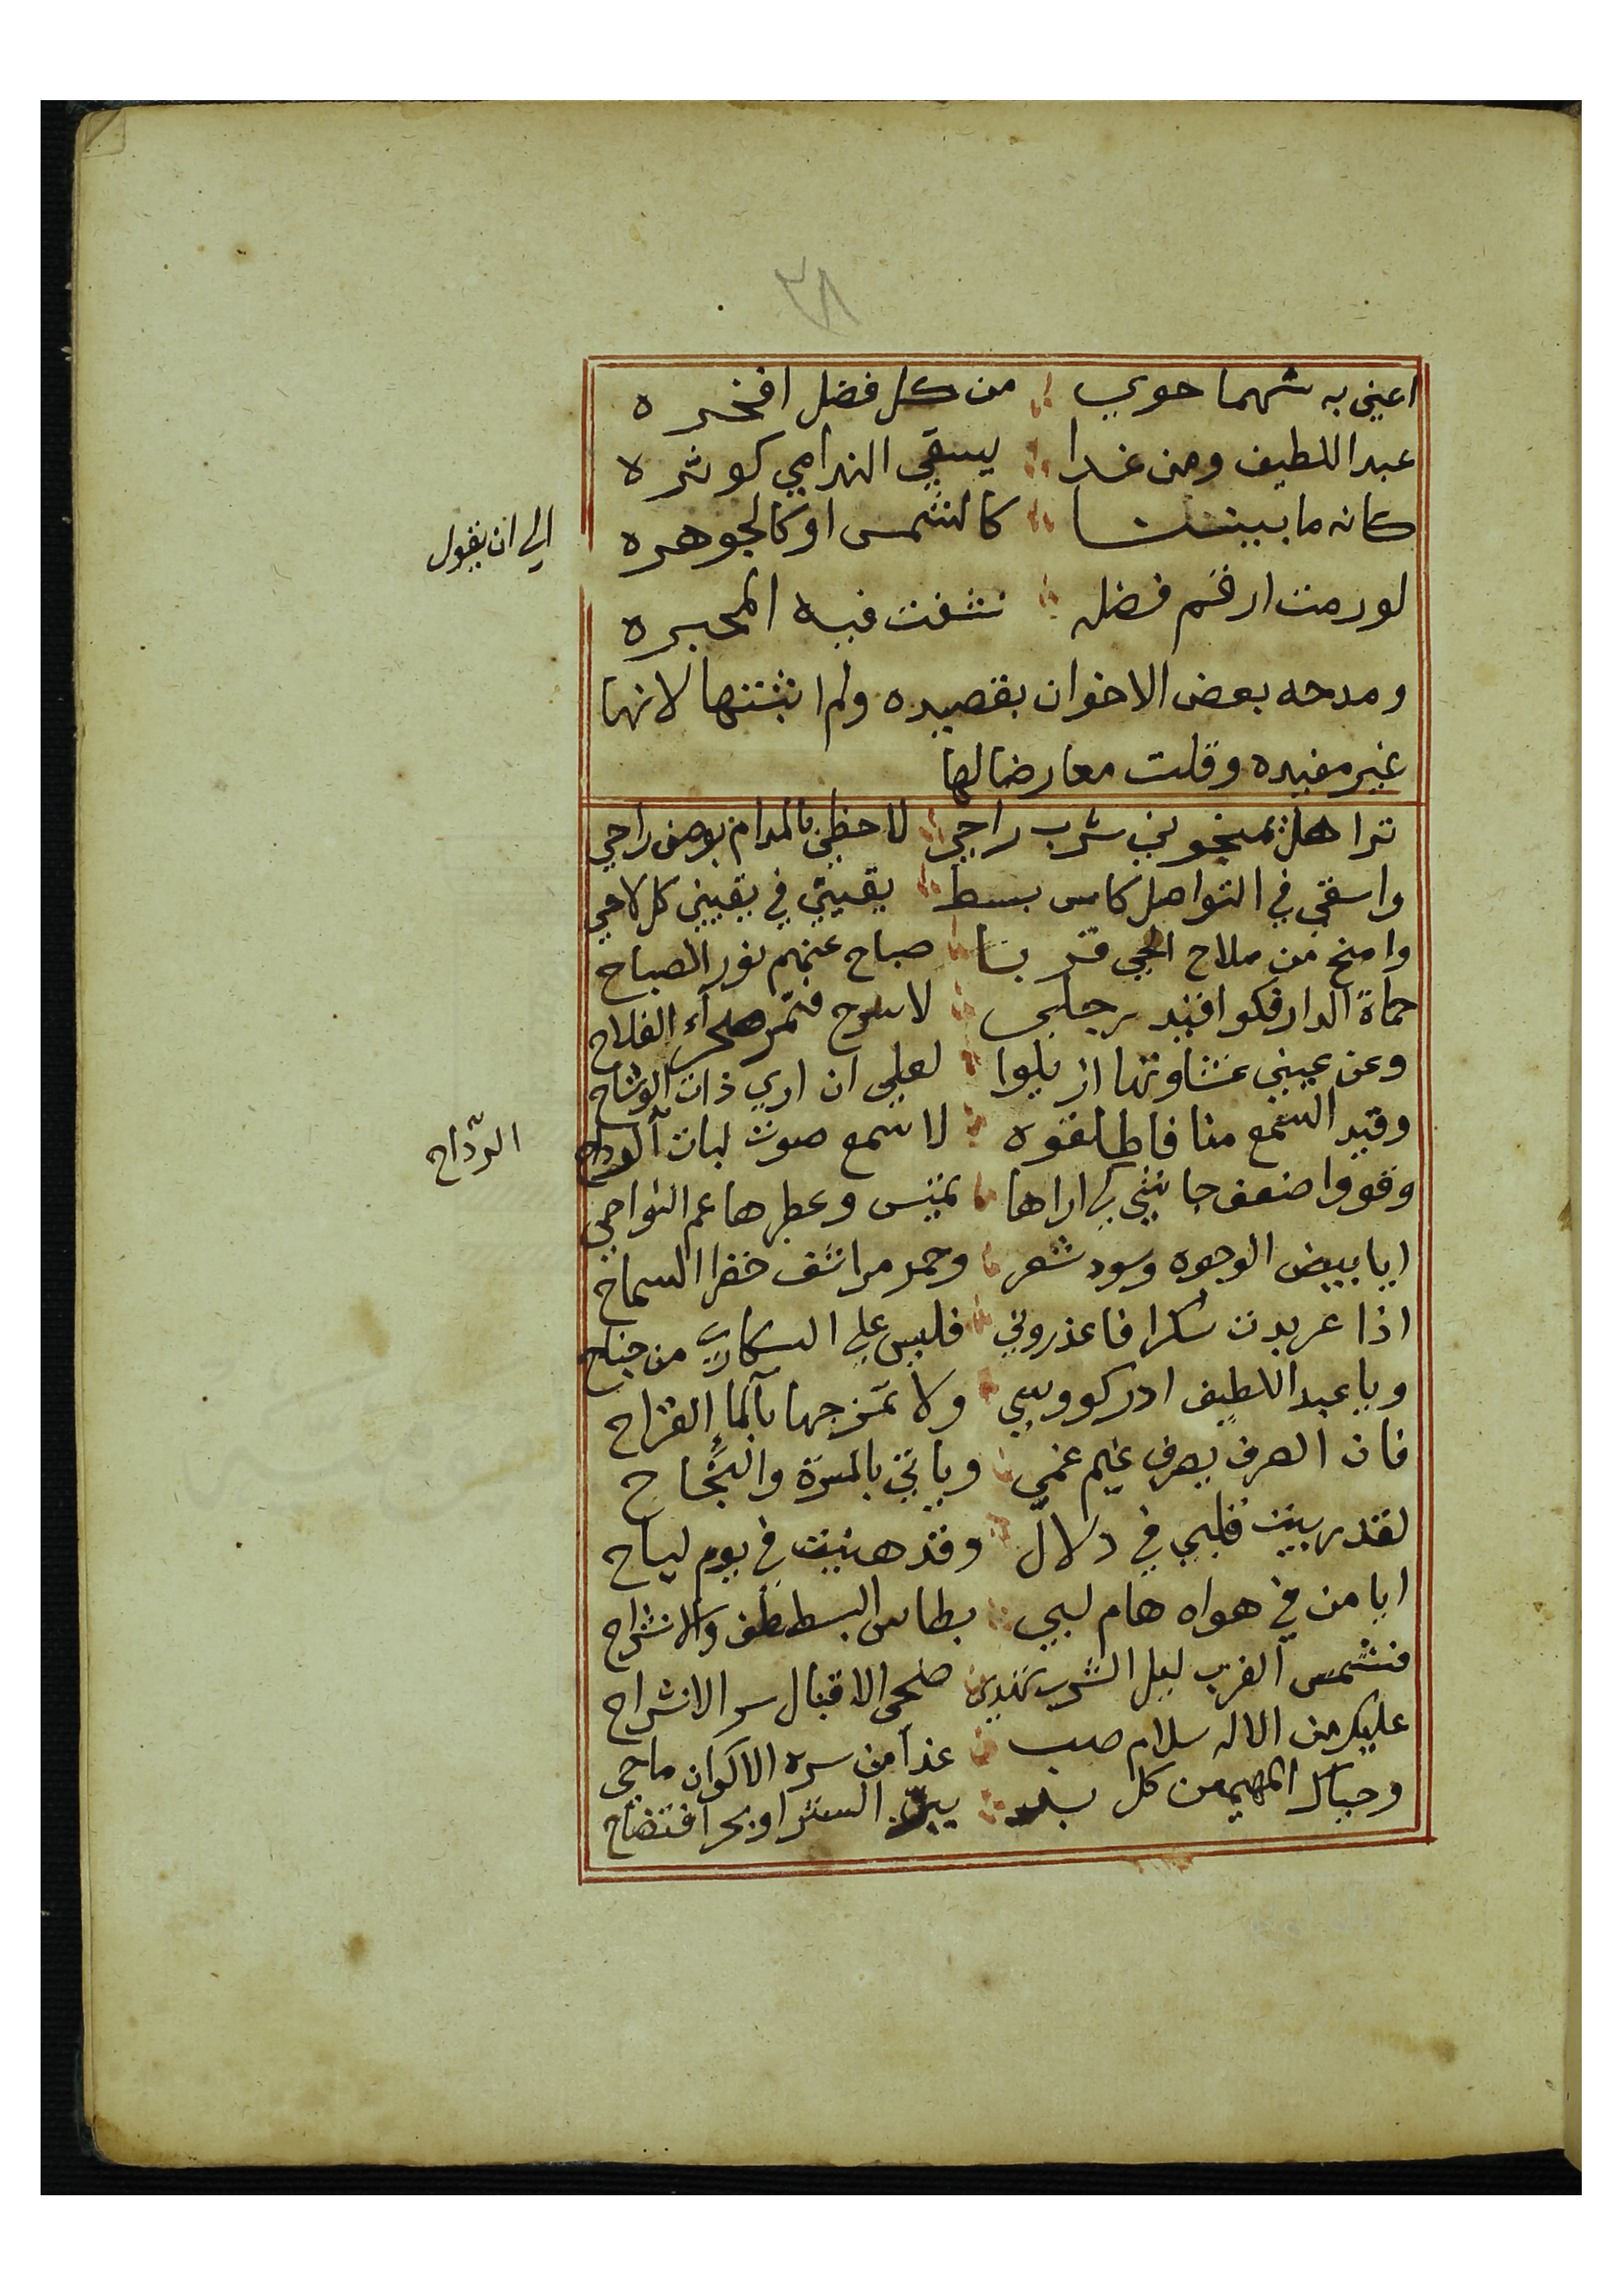 ٢٨
اعني به شهما حوي من كل فضل افخره
عبد اللطيف ومن غدا يسقي الندامي كوثره
كانه ما بيننا كالشمس او كالجوهره
الي ان يقول
لو رمت ارقم فضله نشفت فيه المحبره
ومدحه بعض الاخوان بقصيده ولم اثبتها لانها
غير مفيده وقلت معارضا لها
ترا هل تمنحوني شرب راحي لاحظي بالمدام بوصف راحي
واسقي في التواصل كاس بسط يقيني في يقيني كل لاحي
وامنح من ملاح الحي قربا صباح عنهم نور الصباح
حماة الدار فكوا قيد رجلي لاسرح فتم صحراء الفلاح
وعن عيني غشاوتها ازيلوا لعلي ان اري ذات الوشاح
وقيد السمع منا فاطلقوه لاسمع صوت لبات الرداح
الرّداح
وقووا ضعف جانبي كي اراها تميس وعطرها عم النواحي
ايا بيض الوجوه وسود شعر وحمر مراشف خفرا السماح
اذا عربدت سكرا فاعذروني فليس علي السكاري من جناح
ويا عبد اللطيف ادر كووسي ولا تمزجها بالماء القراح
فان الصرف يصرف غيم غمي وياتي بالمسرة والنجاح
لقد ربيت قلبي في دلال وقد هنيت في يوم لياح
ايا من في هواه هام لبي بطاس البسط طف والانشراح
فشمس القرب ليل الشرب تهدي ضحي الاقبال سر الانشراح
عليكم من الاله سلام صب غدا من سره الاكوان ماحي
وحياك المهيمن كل بسر الستر او بحر افتضاح